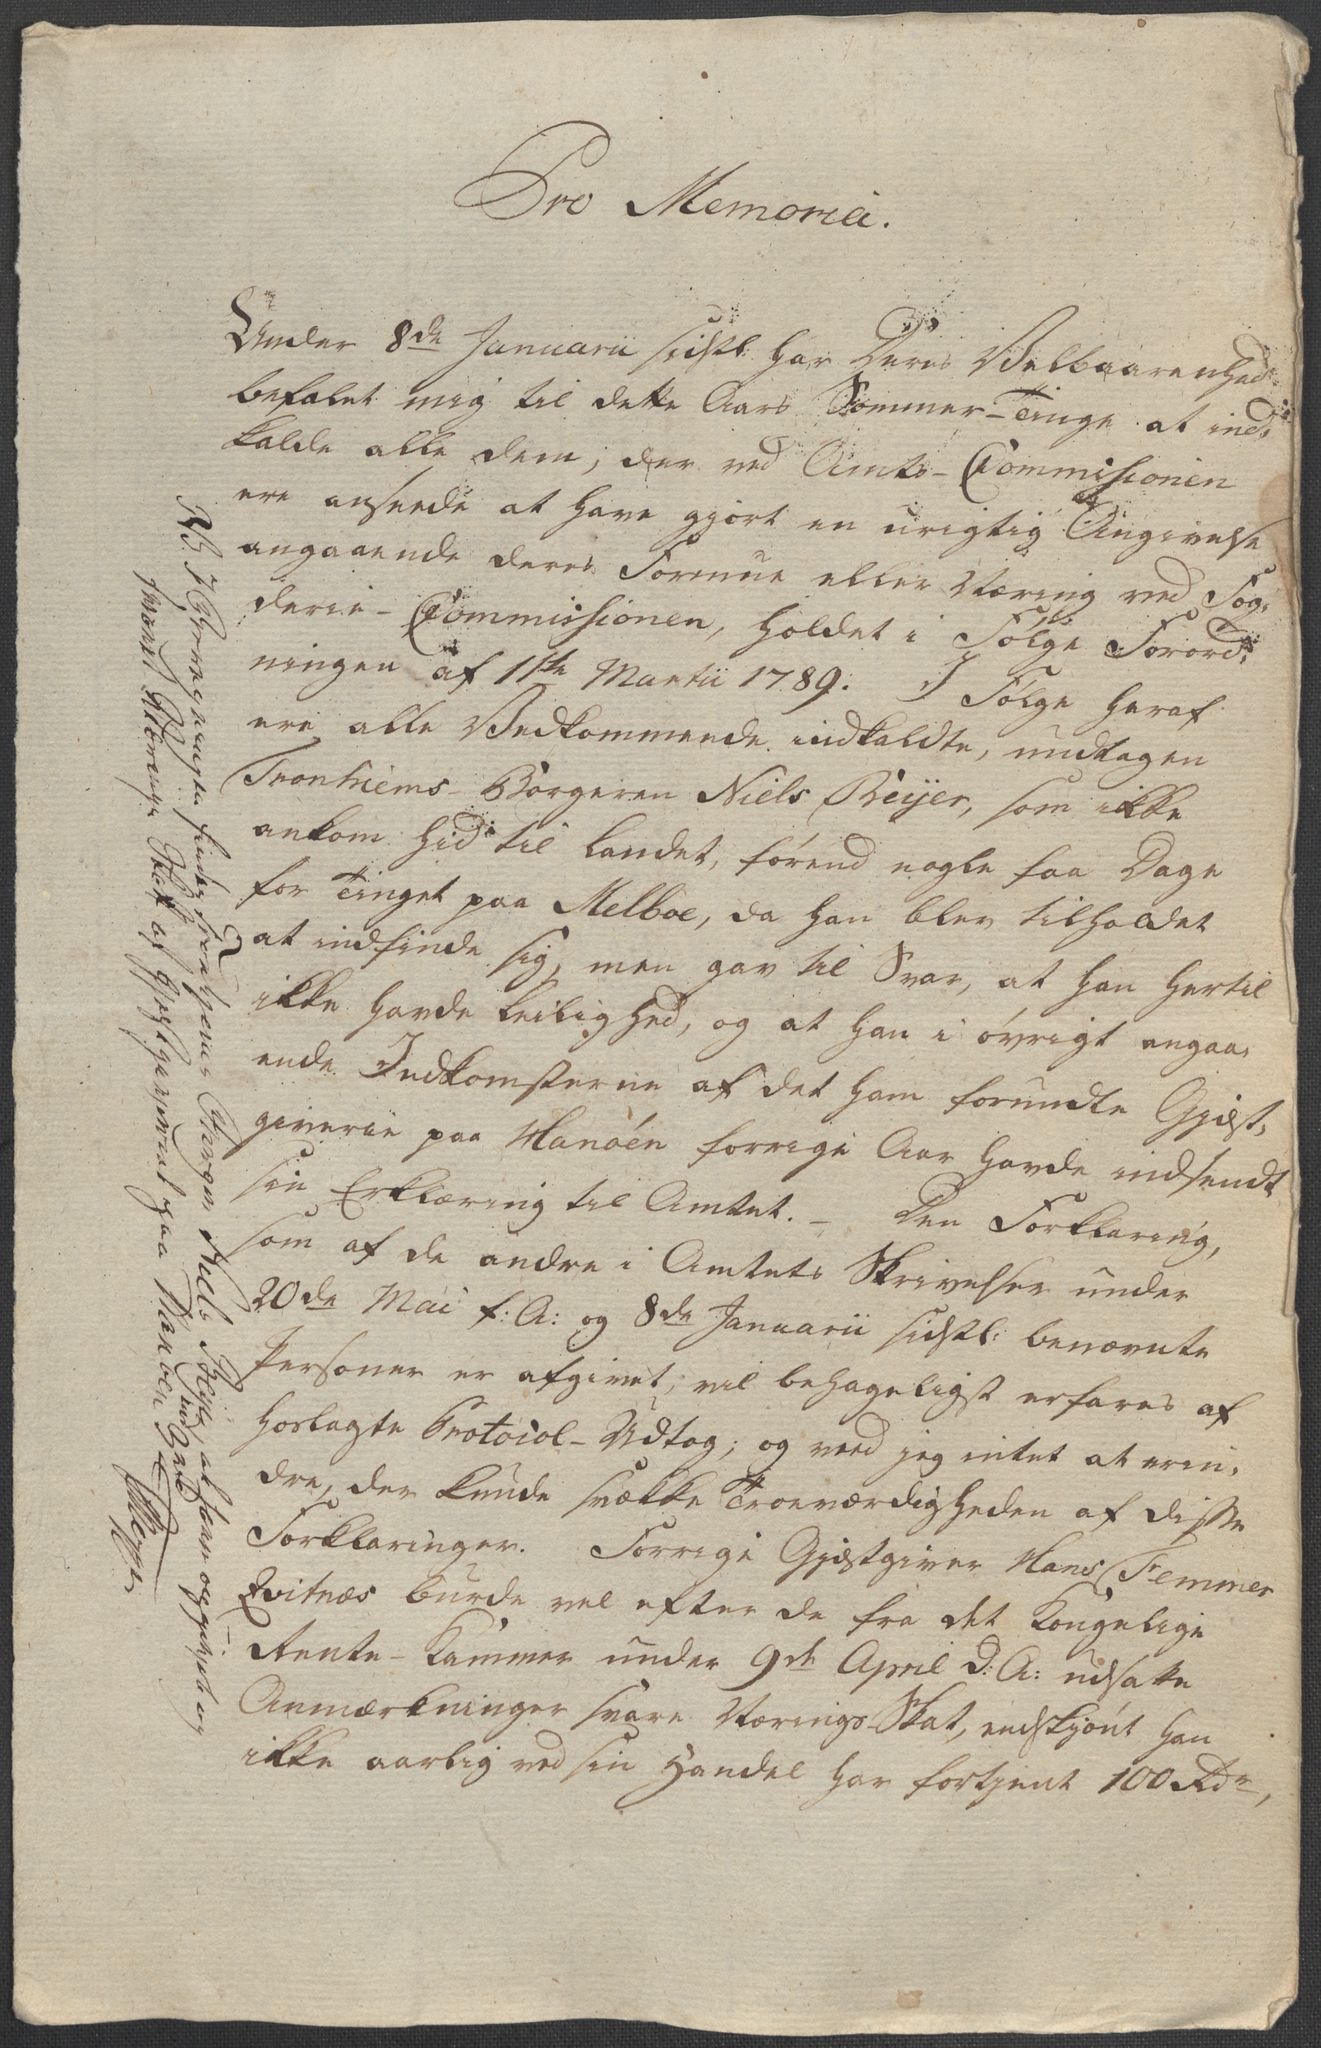 Pro Memoria.
Under 8de Januarii sidstl: har Deres Velbaarenhed
befalet mig til dette Aars Sommer-Tinge at ind-
kalde alle dem, der ved Amts-Commissionen
ere anseede at have gjort en urigtig Angivelse
angaaende deres Formue eller Næring ved Fog-
derie-Commissionen, holdet i Følge Forord-
ningen af 11te Martii 1789. I Følge heraf
ere alle Vedkommende indkaldte, undtagen
Tronhiems-Borgeren Niels Beijer, som ikke
ankom hid til Landet, førend nogle faa Dage
for Tinget paa Melboe, da han blev tilholdet
at indfinde sig, men gav til Svar, at han hertil
ikke havde Leilighed, og at han i øvrigt angaa-
ende Indkomsterne af det ham forundte Gjæst-
giverie paa Hanøen forrige Aar havde indsendt
sin Erklæring til Amtet. – Den Forklaring,
som af de andre i Amtets Skrivelser under
20de Mai f: A: og 8de Januarii sidstl: benævnte
Personer er afgivet, vil behageligst erfares af
hoslagte Protocol-Udtog; og veed jeg intet at erin-
dre, der kunde svække Troeværdigheden af disse
Forklaringer. Forrige Gjæstgiver Hans Femmer
Qvitnæs burde vel efter de fra det Kongelige
Rente-Kammer under 9de April d: A: udsatte
Anmærkninger svare Nærings-Skat, endskjønt han
ikke aarlig ved sin Handel har fortjent 100 Rdr,
NB. I Regnskabet findes Tronhjems Borger Niels Beyer, at have opgivet og
svaret Nærings Skat af Gjestgiveriet paa Hanøen